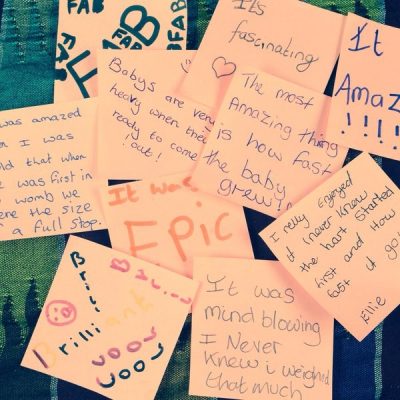 FAB
FAB
FAB
FAB
Its
fascinating
It
Amaz
!!!!!
Babys are very
heavy when their
ready to come
out!
The most
Amazing thing
is how fast
the baby
grew!
was amazed
I was
old that when
was first in
womb we
the size
a full stop.
It was
Epic
I relly Enjoyed
it I never knew
the hart started
first and How
fast it go
Ellie
Brilliant
Brilliant
It was
mind blowing
I Never
Knew i weighed
that much